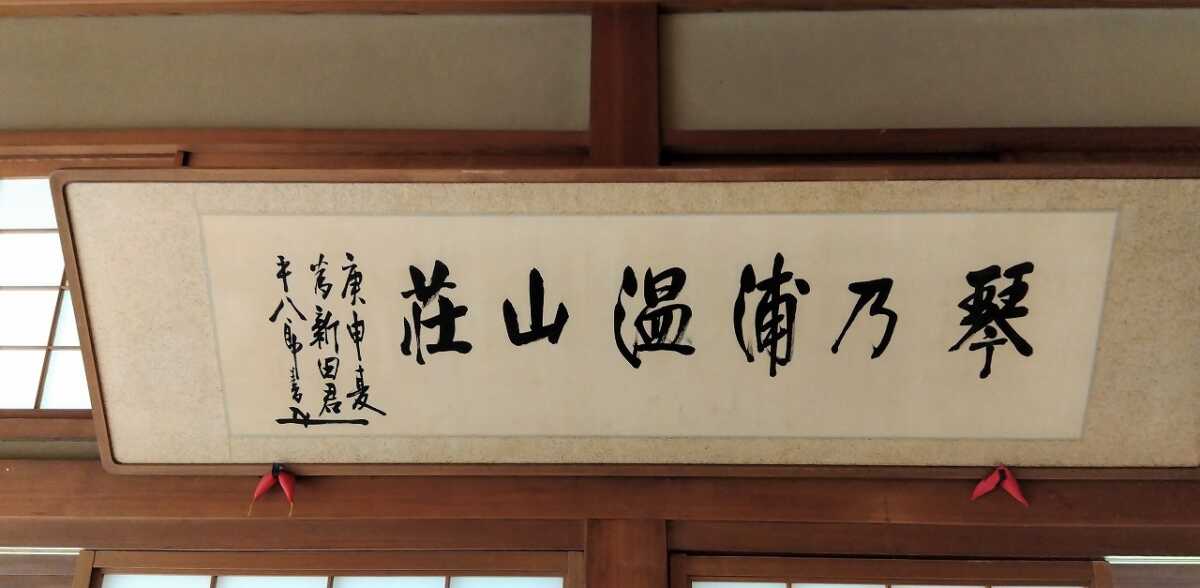 琴乃浦温山荘
庚申夏
為新田君
平八郎書